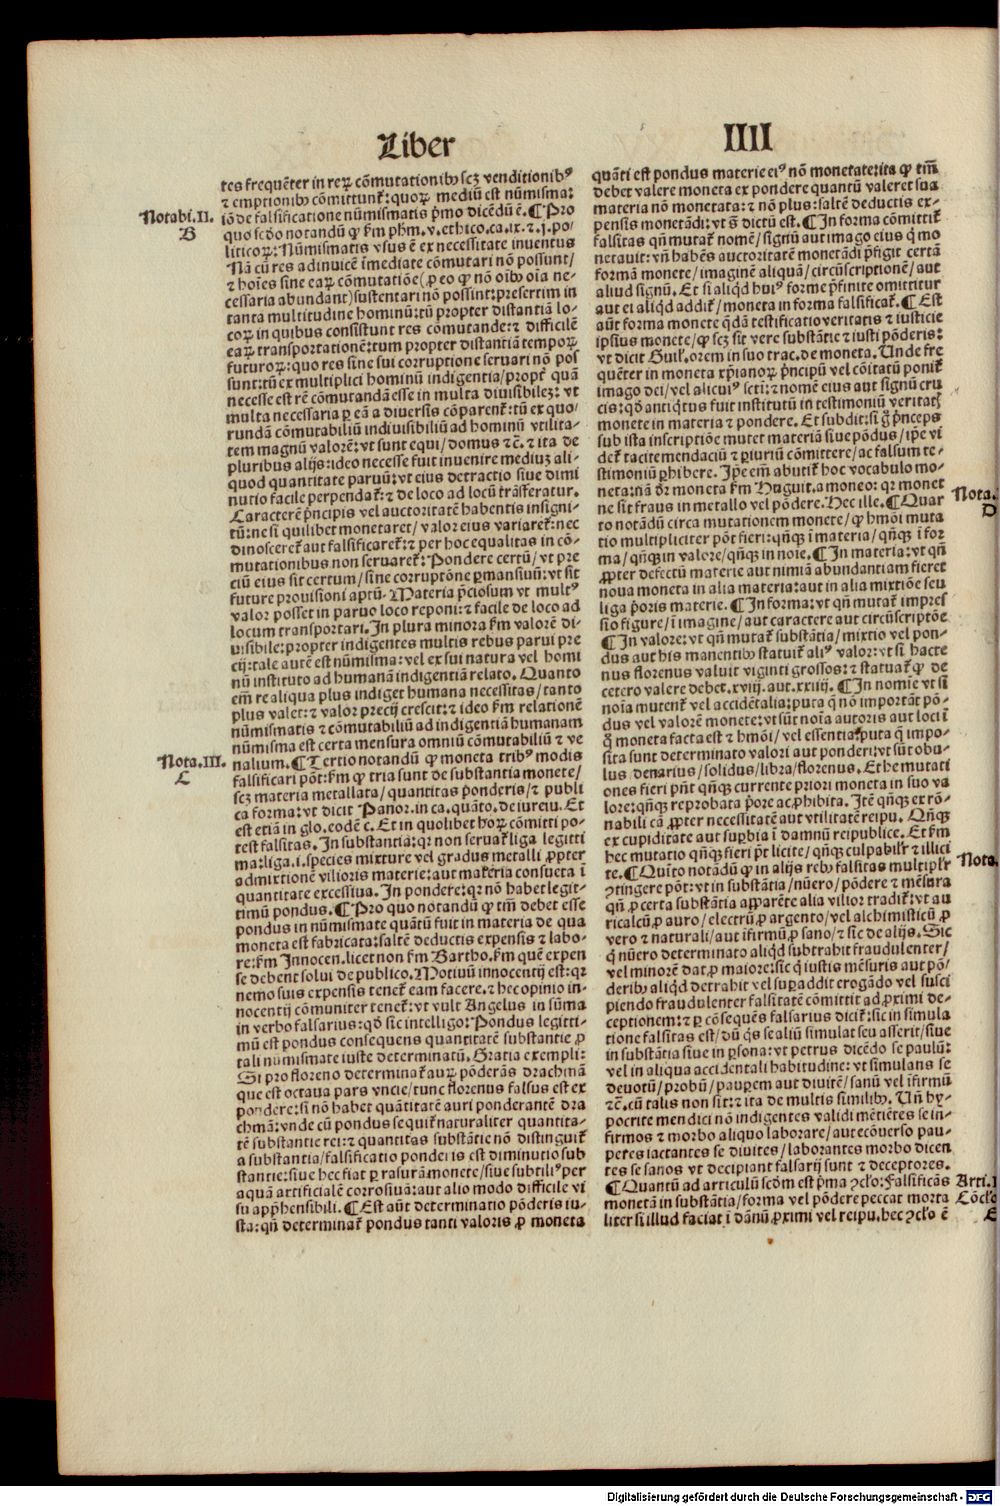 Liber IIII
tes frequẽter in reꝝ cõmutationibꝰ scꝫ venditionibꝰ
⁊ emptionibꝰ cõmittunt᷑: quoꝝ mediũ est nũmisma:
iõ de falsificatione nũmismatis p̃mo dicẽdũ ẽ. ¶ Pro
Notabi. II.
B
quo scðo notandũ ꝙ ẜm phm̃. v. ethico. ca. ix. ⁊. j. po/
liticoꝝ: Nũmismatis vsus ẽ ex necessitate inuentus
Nã cũ res adinuicẽ ĩmediate cõmutari nõ possunt/
⁊ hoĩes sine eaꝝ cõmutatiõe (ꝑ eo ꝙ nõ oĩbꝰ oĩa ne-
cessaria abundant) sustentari nõ possint: presertim in
tanta multitudine hominũ: tũ propter distantiã lo-
coꝝ in quibus consistunt res cõmutande: ⁊ difficilẽ
eaꝝ transportationẽ: tum propter distantiã tempoꝝ
futuroꝝ: quo res sine sui corruptione seruari nõ pos
sunt: tũ ex multiplici hominũ indigentia/ propt᷑ quã
necesse est rẽ cõmutandã esse in multa diuisibileꝫ: vt
multa necessaria ꝑ eã a diuersis cõparent᷑: tũ ex quo/
rundã cõmutabiliũ indiuisibiliũ ad hominũ vtilita-
tem magnũ valorẽ: vt sunt equi/ domus ⁊c̃. ⁊ ita de
pluribus alijs: ideo necesse fuit inuenire mediuꝫ ali-
quod quantitate paruũ: vt eius detractio siue dimi
nutio facile perpendat᷑: ⁊ de loco ad locũ trãsferatur.
Caracterẽ p̃ncipis vel auctoritatẽ habentis insigni-
tũ: ne si quilibet monetaret/ valor eius variaret᷑: nec
dinosceret᷑ aut falsificaret᷑: ⁊ per hoc equalitas in cõ-
mutationibus non seruaret᷑: Pondere certũ/ vt pre
ciũ eius sit certum/ sine corruptõne ꝑmansiuũ: vt sit
future prouisioni aptũ. Materia p̃ciosum vt multꝰ
valor posset in paruo loco reponi: ⁊ facile de loco ad
locum transportari. In plura minora ẜm valorẽ di-
uisibile: propter indigentes multis rebus parui pre
cij: tale autẽ est nũmisma: vel ex sui natura vel homi
nũ instituto ad humanã indigentiã relato. Quanto
em̃ re aliqua plus indiget humana necessitas/ tanto
plus valet: ⁊ valor precij crescit: ⁊ ideo ẜm relationẽ
nũmismatis ⁊ cõmutabiliũ ad indigentiã humanam
nũmisma est certa mensura omniũ cõmutabiliũ ⁊ ve
Nota. III.
C
nalium. ¶ Tertio notandũ ꝙ moneta tribꝰ modis
falsificari põt: ẜm ꝙ tria sunt de substantia monete/
scꝫ materia metallata/ quantitas p̃onderis/ ⁊ publi
ca forma: vt dicit Panor. in ca. quãto. de iureiu. Et
est etiã in glo. eodẽ c. Et in quolibet hoꝝ cõmitti po-
test falsitas. In substantia: qꝛ non seruat᷑ liga legitti
ma: liga. i. species mixture vel gradus metalli ꝓpter
admixtionẽ vilioris materie: aut materia consueta ĩ
quantitate excessiua. In pondere: qꝛ nõ habet legit-
timũ pondus. ¶ Pro quo notandũ ꝙ tm̃ debet esse
pondus in nũmismate quãtũ fuit in materia de qua
moneta est fabricata: saltẽ deductis expensis ⁊ labo-
re: ẜm Innocen. licet non ẜm Bartho. ẜm quẽ expen
se debent solui de publico. Motiuũ innocentij est: qꝛ
nemo suis expensis tenet᷑ eam facere. ⁊ hec opinio in-
nocentij cõmuniter tenet᷑: vt vult Angelus in sũma
in verbo falsarius: qð sic intelligo: Pondus legitti-
mũ est pondus consequens quantitatẽ substantie ꝓ
tali numismate iuste determinatũ. Gratia exempli:
Si pro floreno determinat᷑ auꝝ põderãs drachmã
que est octaua pars vncie/ tunc florenus falsus est ex
pondere: si nõ habet quãtitatẽ auri ponderantẽ dra
chmã: vnde cũ pondus sequit᷑ naturaliter quantita-
tẽ substantie rei: ⁊ quantitas substãtie nõ distinguit᷑
a substantia/ falsificatio ponderis est diminutio sub
stantie: siue hec fiat ꝑ rasurã monete/ siue subtiliꝰ per
aquã artificialẽ corrosiuã: aut alio modo difficile vi
su app̃hensibili. ¶ Est aũt determinatio põderis iu-
sta: qñ determinat᷑ pondus tanti valoris ꝓ moneta
quãti est pondus materie eiꝰ nõ monetate: ita ꝙ tm̃
debet valere moneta ex pondere quantũ valeret sua
materia nõ monetata: ⁊ nõ plus: saltẽ deductis ex-
pensis monetãdi: vt s̃ dictũ est. ¶ In forma cõmittit᷑
falsitas qñ mutat᷑ nomẽ/ signũ aut imago eius q̃ mo
netauit: vñ habẽs auctoritatẽ monetãdi p̃figit certã
formã monete/ imaginẽ aliquã/ circũscriptionẽ/ aut
aliud signũ. Et si aliqd huiꝰ forme p̃finite omittitur
aut ei aliqd addit᷑/ moneta in forma falsificat᷑. ¶ Est
aũt forma monete q̃dã testificatio veritatis ⁊ iusticie
ipsius monete/ ꝙ scꝫ sit vere substãtie ⁊ iusti põderis:
vt dicit Guil. orem in suo trac. de moneta. Unde fre
quẽter in moneta xp̃ianoꝝ p̃ncipũ vel cõitatũ ponit᷑
imago dei/ vel alicuiꝰ scti: ⁊ nomẽ eius aut signũ cru
cis: qð antiq̃tus fuit institutũ in testimoniũ veritatꝭ
monete in materia ⁊ pondere. Et subdit: si g̃ p̃nceps
sub ista inscriptiõe mutet materiã siue põdus/ ip̃e vi
det᷑ tacite mendaciũ ⁊ ꝑiuriũ cõmittere/ ac falsum te-
stimoniũ ꝑhibere. Ip̃e em̃ abutit᷑ hoc vocabulo mo-
neta: nã dr̃ moneta ẜm Huguit. a moneo: qꝛ monet
Nota.
D
ne sit fraus in metallo vel põdere. Hec ille. ¶ Quar
to notãdũ circa mutationem monete/ ꝙ hmõi muta
tio multipliciter põt fieri: qñqꝫ ĩ materia/ qñqꝫ ĩ for
ma/ qñqꝫ in valore/ qñqꝫ in noĩe. ¶ In materia: vt qñ
ꝓpter defectũ materie aut nimiã abundantiam fieret
noua moneta in alia materia: aut in alia mixtiõe seu
liga p̃oris materie. ¶ In forma: vt qñ mutat᷑ impres
sio figure/ ĩ imagine/ aut caractere aut circũscriptõe
¶ In valore: vt qñ mutat᷑ substãtia/ mixtio vel pon-
dus aut his manentibꝰ statuit᷑ aliꝰ valor: vt si hacte
nus florenus valuit viginti grossos: ⁊ statuat᷑ ꝙ de
cetero valere debet. xviij. aut. xxiiij. ¶ In nomĩe vt si
noĩa mutent᷑ vel accidẽtalia: puta q̃ nõ importãt põ-
dus vel valorẽ monete: vt sũt noĩa autoris aut loci ĩ
q̃ moneta facta est ⁊ hmõi/ vel essentia: puta q̃ impo-
sita sunt determinato valori aut ponderi: vt sũt obu-
lus denarius/ solidus/ libra/ florenus. Et he mutati
ones fieri pñt qñqꝫ currente priori moneta in suo va
lore: qñqꝫ reprobata p̃ore ac ꝓhibita. Itẽ qñqꝫ ex rõ-
nabili cã ꝓpter necessitatẽ aut vtilitatẽ reipu. Qñqꝫ
ex cupiditate aut suꝑbia ĩ damnũ reipublice. Et ẜm
hec mutatio qñqꝫ fieri p̃t licite/ qñqꝫ culpabilr̃ ⁊ illici
Nota.
te. ¶ Quĩto notãdũ ꝙ in alijs rebꝰ falsitas multiplr̃
ꝯtingere põt: vt in substãtia/ nũero/ põdere ⁊ mẽsura
qñ ꝓ certa substãtia apparẽte alia vilior tradit᷑: vt au
ricalcũ ꝓ auro/ electrũ ꝓ argento/ vel alchimisticũ ꝓ
vero ⁊ naturali/ aut ĩfirmũ ꝓ sano/ ⁊ sic de alijs. Sic
q̃ nũero determinato aliqd subtrahit fraudulenter/
vel minorẽ dat ꝓ maiore: sic q̃ iustis mẽsuris aut põ/
deribꝰ aliqd detrahit vel suꝑaddit erogãdo vel susci
piendo fraudulenter falsitatẽ cõmittit ad ꝓximi de-
ceptionem: ⁊ ꝑ cõsequẽs falsarius dicit᷑: sic in simula
tione falsitas est/ dũ q̃s se aliũ simulat seu asserit/ siue
in substãtia siue in ꝑsona: vt petrus dicẽdo se paulũ:
vel in aliqua accidentali habitudine: vt simulans se
deuotũ/ probũ/ pauꝑem aut diuitẽ/ sanũ vel ĩfirmũ
⁊c̃. cũ talis non sit: ⁊ ita de multis similibꝰ. Uñ hy-
pocrite mendici nõ indigentes validi mẽtiẽtes se in-
firmos ⁊ morbo aliquo laborare/ aut ecõuerso pau-
peres iactantes se diuites/ laborantes morbo dicen
tes se sanos vt decipiant falsarij sunt ⁊ deceptores.
Arti. I
Cõclo
E
¶ Quantũ ad articulũ scðm est p̃ma ꝯclo: Falsificãs
monetã in substãtia/ forma vel põdere peccat morta
liter si illud faciat ĩ dãnũ ꝓximi vel reipu. hec ꝯclo ẽ
Digitalisierung gefördert durch die Deutsche Forschungsgemeinschaft - DFG